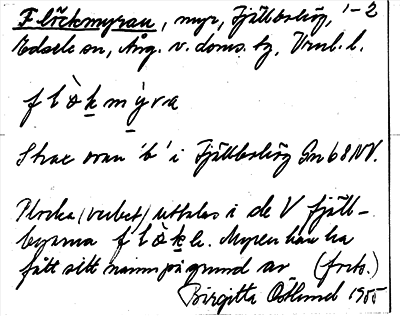 Flöckmyran, myr, Fjällbohög, 1-2
Edsele sn, Ång. v. doms. tg, Vrml. l.
flòkmỳra
Strax ovan 'b' i Fjällbohög Gn 68 NV.
Flocka (verbet) uttalas i de V fjäll-
byarna flòke. Myren kan ha
fått sitt namn på grund av (forts.)
Birgitta Östlund 1955